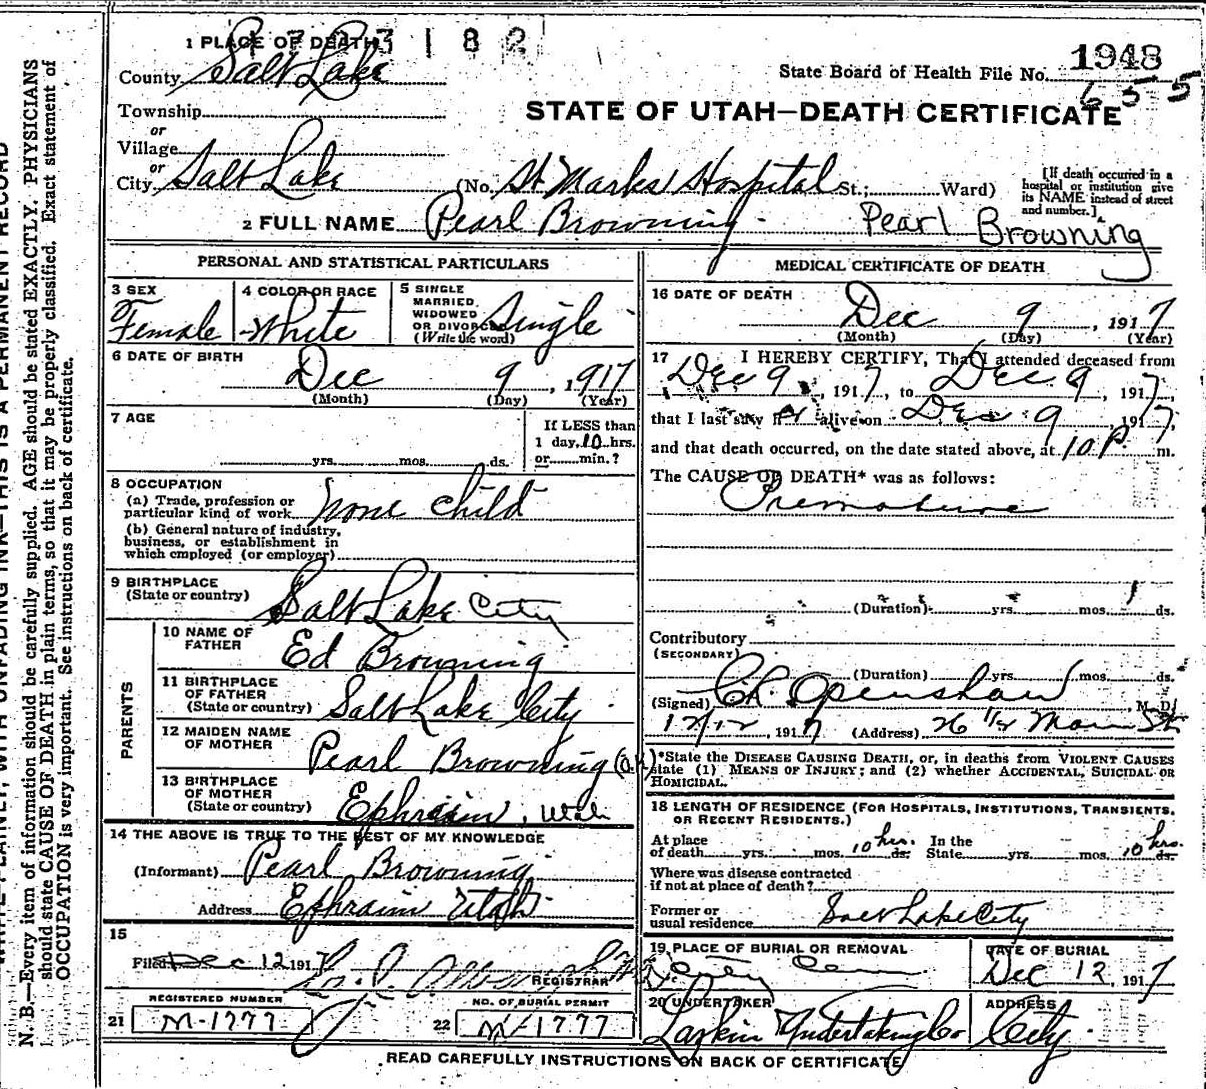 1 PLACE OF DEATH
3 1 8 2
County Salt Lake
State Board of Health File No. 1948
655
Township
STATE OF UTAH—DEATH CERTIFICATE
or
Village
or
City Salt Lake (No. St Marks Hospital St.; Ward)
[If death occurred in a hospital or institution give its NAME instead of street and number.]
2 FULL NAME Pearl Browning Pearl Browning
PERSONAL AND STATISTICAL PARTICULARS
3 SEX Female
4 COLOR OR RACE White
5 SINGLE MARRIED, WIDOWED OR DIVORCED (Write the word) Single
6 DATE OF BIRTH
Dec 9, 1917
(Month) (Day) (Year)
7 AGE
yrs. mos. ds.
If LESS than
1 day, 10 hrs.
or min.?
8 OCCUPATION
(a) Trade, profession or
particular kind of work none child
(b) General nature of industry,
business, or establishment in
which employed (or employer)
9 BIRTHPLACE
(State or country) Salt Lake City
PARENTS
10 NAME OF
FATHER Ed Browning
11 BIRTHPLACE
OF FATHER
(State or country) Salt Lake City
12 MAIDEN NAME
OF MOTHER Pearl Browning (O.K.)
13 BIRTHPLACE
OF MOTHER
(State or country) Ephraim, Utah
14 THE ABOVE IS TRUE TO THE BEST OF MY KNOWLEDGE
(Informant) Pearl Browning
Address Ephraim Utah
15
Filed Dec 12 1917
REGISTRAR
REGISTERED NUMBER
21 M-1777
NO. OF BURIAL PERMIT
22 M-1777
MEDICAL CERTIFICATE OF DEATH
16 DATE OF DEATH
Dec 9, 1917
(Month) (Day) (Year)
17 I HEREBY CERTIFY, That I attended deceased from
Dec 9, 1917, to Dec 9, 1917,
that I last saw her alive on Dec 9 1917,
and that death occurred, on the date stated above, at 10 P. m.
The CAUSE OF DEATH* was as follows:
Premature
(Duration) yrs. mos. 1 ds.
Contributory
(SECONDARY)
(Duration) yrs. mos. ds.
(Signed) Openshaw M. D.
12/12, 1917 (Address) 26 1/2 Main St
*State the DISEASE CAUSING DEATH, or, in deaths from VIOLENT CAUSES
state (1) MEANS OF INJURY; and (2) whether ACCIDENTAL, SUICIDAL OR
HOMICIDAL.
18 LENGTH OF RESIDENCE (FOR HOSPITALS, INSTITUTIONS, TRANSIENTS,
OR RECENT RESIDENTS.)
At place
of death yrs. mos. 10 hrs. ds. In the
State yrs. mos. 10 hrs. ds.
Where was disease contracted
if not at place of death?
Former or
usual residence Salt Lake City
19 PLACE OF BURIAL OR REMOVAL
City Cem
DATE OF BURIAL
Dec 12, 1917
20 UNDERTAKER
Larkin Undertaking Co
ADDRESS
City
READ CAREFULLY INSTRUCTIONS ON BACK OF CERTIFICATE
N. B.—Every item of information should be carefully supplied. AGE should be stated EXACTLY. PHYSICIANS
should state CAUSE OF DEATH in plain terms, so that it may be properly classified. Exact statement of
OCCUPATION is very important. See instructions on back of certificate.
WITH UNFADING INK—THIS IS A PERMANENT RECORD